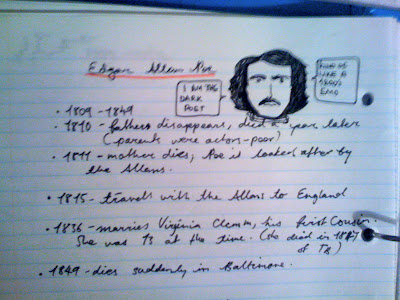 Edgar Allan Poe
I AM THE
DARK
POET
LIKE A
EMO
• 1809 - 1849
• 1810 - father disappears, died a year later
(parents were actors - poor)
• 1811 - mother dies; Poe is looked after by
the Allans.
• 1815 - travels with the Allans to England
• 1836 - marries Virginia Clemm, his first cousin.
She was 13 at the time. (she died in 1847
of TB)
• 1849 - dies suddenly in Baltimore.